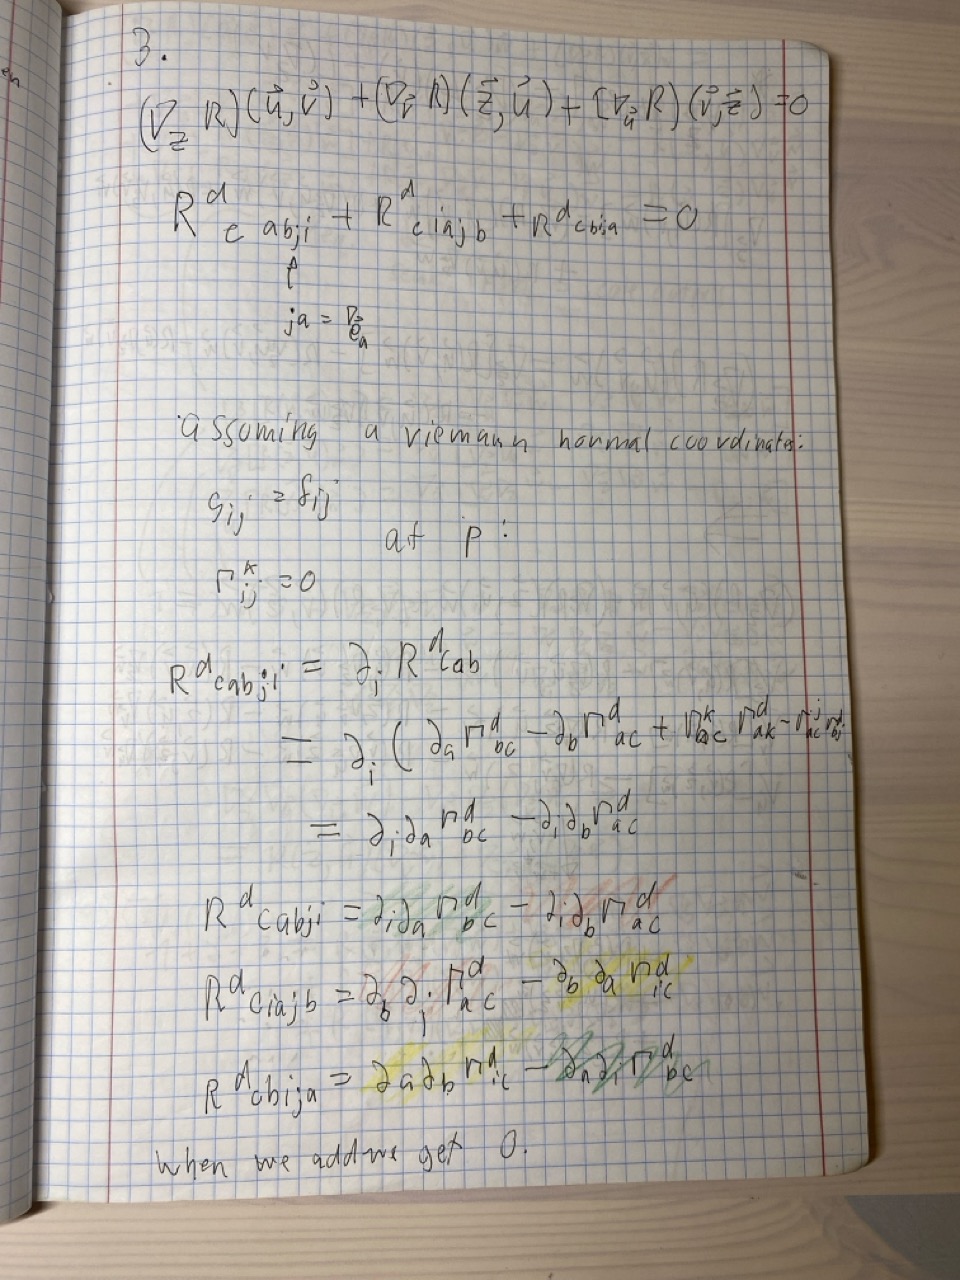 3.
(∇_z R)(u⃗,v⃗) + (∇_v⃗ R)(z⃗,u⃗) + (∇_u⃗ R)(v⃗,z⃗) = 0
R^d_{c ab;i} + R^d_{c ia;b} + R^d_{cbi;a} = 0
↑
;a = ∇_{e⃗_a}
assuming a riemann normal coordinates:
g_{ij} = δ_{ij}
at p:
Γ^k_{ij} = 0
R^d_{cab;i} = ∂_i R^d_{cab}
= ∂_i (∂_a Γ^d_{bc} - ∂_b Γ^d_{ac} + Γ^k_{bc} Γ^d_{ak} - Γ^j_{ac} Γ^d_{bj}
= ∂_i ∂_a Γ^d_{bc} - ∂_i ∂_b Γ^d_{ac}
R^d_{cab;i} = ∂_i ∂_a Γ^d_{bc} - ∂_i ∂_b Γ^d_{ac}
R^d_{cia;b} = ∂_b ∂_i Γ^d_{ac} - ∂_b ∂_a Γ^d_{ic}
R^d_{cbi;a} = ∂_a ∂_b Γ^d_{ic} - ∂_a ∂_i Γ^d_{bc}
When we add we get 0.